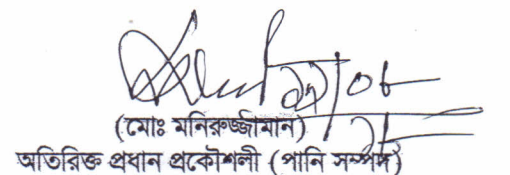 (মোঃ মনিরুজ্জামান)
অতিরিক্ত প্রধান প্রকৌশলী (পানি সম্পদ)